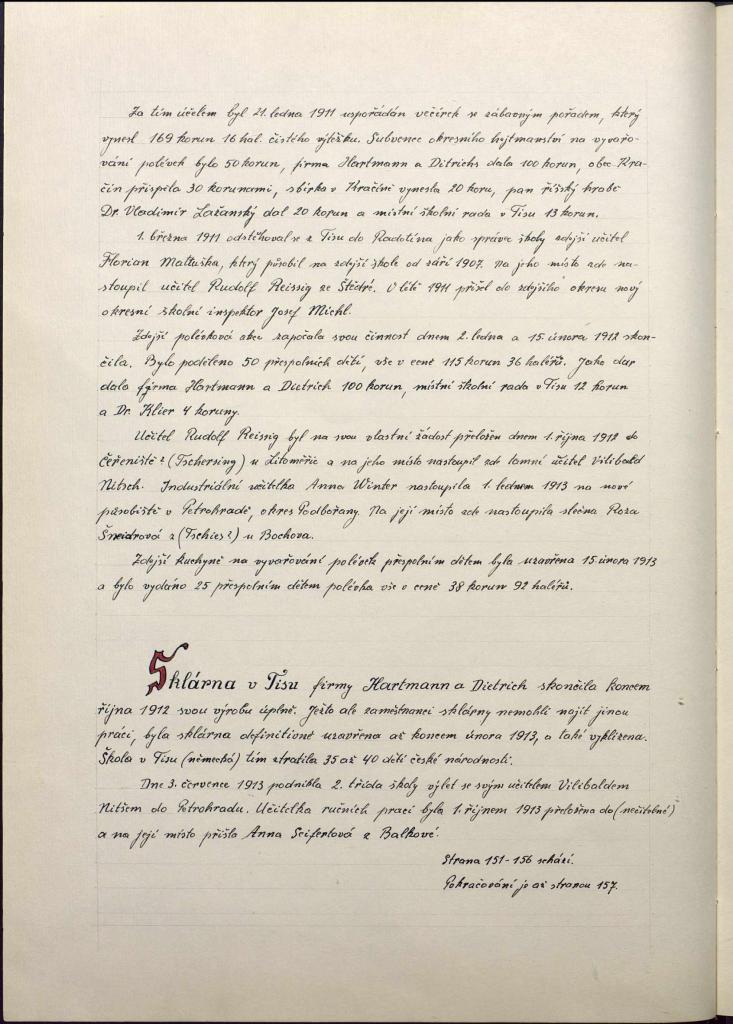 Za tím účelem byl 21. ledna 1911 uspořádán večírek se zábavným pořadem, který
vynesl 169 korun 16 hal. čistého výtěžku. Subvence okresního hejtmanství na vyvařo-
vání polévek bylo 50 korun, firma Hartmann a Ditrichs dala 100 korun, obec Kra-
čín přispěla 30 korunami, sbírka v Kračíně vynesla 20 koru, pan říšský hrabě
Dr. Vladimír Lažanský dal 20 korun a místní školní rada v Tisu 13 korun.
1. března 1911 odstěhoval se z Tisu do Radotína jako správce školy zdejší učitel
Florian Mattuška, který působil na zdejší škole od září 1907. Na jeho místo zde na-
stoupil učitel Rudolf Reissig ze Štědré. V létě 1911 přišel do zdejšího okresu nový
okresní školní inspektor Josef Michl.
Zdejší polévková akce započala svou činnost dnem 2. ledna a 15. února 1912 skon-
čila. Bylo poděleno 50 přespolních dětí, vše v ceně 115 korun 36 haléřů. Jako dar
dala firma Hartmann a Dietrich 100 korun, místní školní rada v Tisu 12 korun
a Dr. Klier 4 koruny.
Učitel Rudolf Reissig byl na svou vlastní žádost přeložen dnem 1. října 1912 do
Čeřeniště? (Tschersing) u Litoměřic a na jeho místo nastoupil zde tamní učitel Vilibald
Nitsch. Industriální učitelka Anna Winter nastoupila 1. lednem 1913 na nové
působiště v Petrohradě, okres Podbořany. Na její místo zde nastoupila slečna Roza
Šneidrová z (Tschies?) u Bochova.
Zdejší kuchyně na vyvařování polévek přespolním dětem byla uzavřena 15. února 1913
a bylo vydáno 25 přespolním dětem polévka vše v ceně 38 korun 92 haléřů.
Sklárna v Tisu firmy Hartmann a Dietrich skončila koncem
října 1912 svou výrobu úplně. Ježto ale zaměstnanci sklárny nemohli najít jinou
práci, byla sklárna definitivně uzavřena až koncem února 1913, a také vyklizena.
Škola v Tisu (německá) tím ztratila 35 až 40 dětí české národnosti.
Dne 3. července 1913 podnikla 2. třída školy výlet se svým učitelem Vilibaldem
Nitšem do Petrohradu. Učitelka ručních prací byla 1. říjnem 1913 přeložena do (nečitelné)
a na její místo přišla Anna Seifertová z Balkové.
Strana 151-156 schází.
Pokračování je až stranou 157.